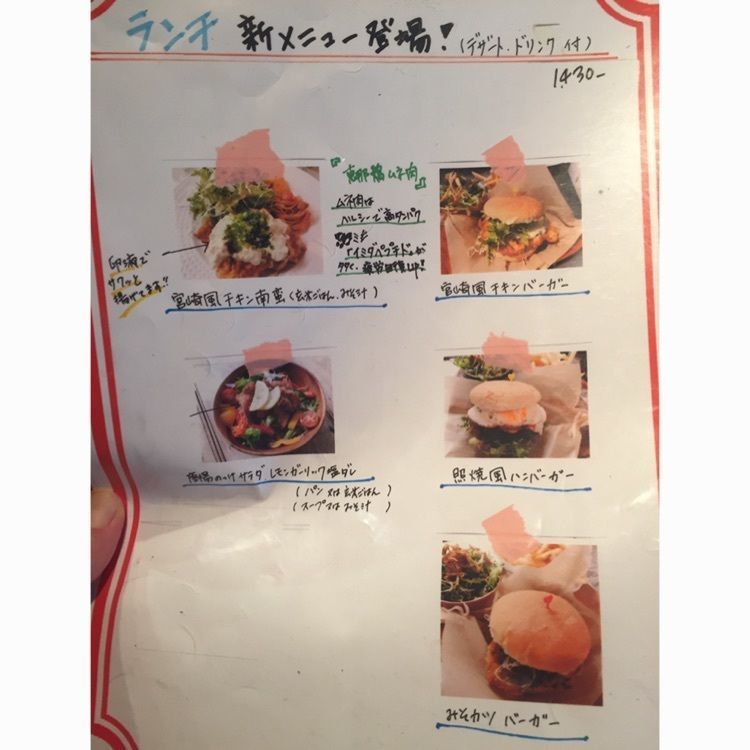 ランチ 新メニュー登場!(デザート・ドリンク付)
1430-
『恵那鶏ムネ肉』
ムネ肉は
ヘルシーで高タンパク
「イミダペプチド」が
卵液で
サクッと
揚げてます!!
宮崎風チキン南蛮(玄米ごはん、みそ汁)
宮崎風チキンバーガー
のっけサラダ レモンガーリック塩ダレ
(パン又は玄米ごはん)
(スープ又はみそ汁)
照焼風ハンバーガー
みそカツバーガー